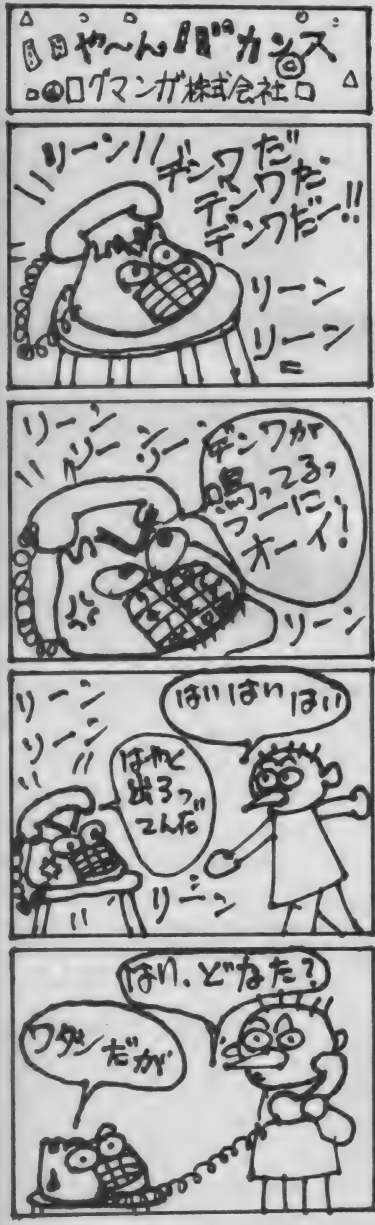 いや〜んバカンス
ログマンガ株式会社
リーン!!
デンワだ
デンワだ
デンワだー!!
リーン
リーン
リーン
リーン
リーン
デンワが
鳴ってるっ
つーに、
オーイ!
リーン
はい はい はい
リーン
リーン
はやく
出ろっ
てんだ
リーン
はい、どなた?
ワタシだが